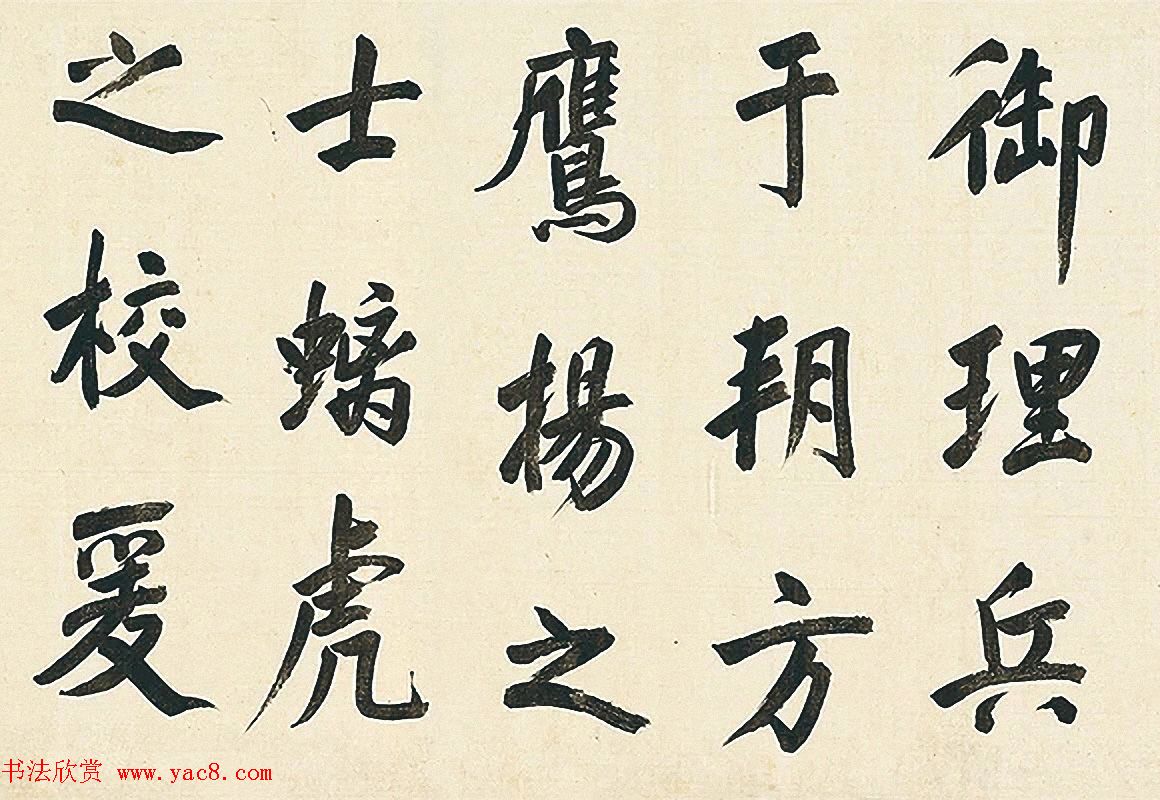 御理兵
于朝方
鷹揚之
士螭虎
之校爰
书法欣赏 www.yac8.com